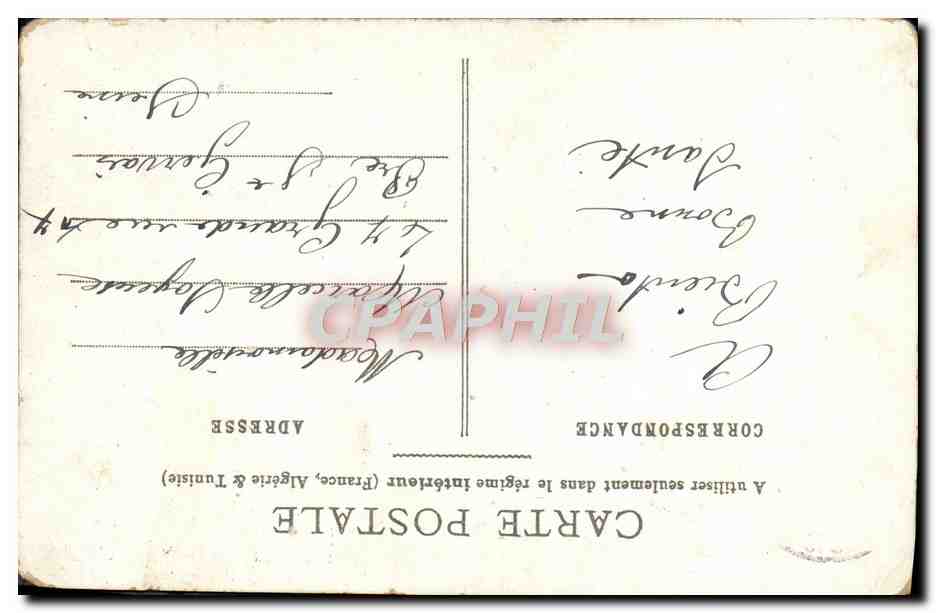 CARTE POSTALE
A utiliser seulement dans le régime intérieur (France, Algérie & Tunisie)
CORRESPONDANCE
A
Bientot
Bonne
Santé
ADRESSE
Mademoiselle
Marcelle
47 Grande rue 47
Pré St Gervais
Seine
CPAPHIL